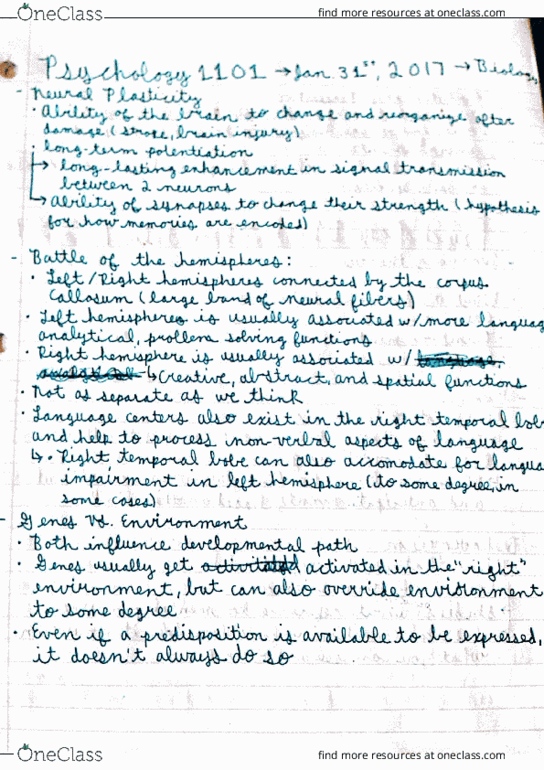 OneClass
find more resources at oneclass.com
Psychology 1101 → Jan. 31st, 2017 → Biology
- Neural Plasticity
• Ability of the brain to change and reorganize after
damage (stroke, brain injury)
• long-term potentiation
→ long-lasting enhancement in signal transmission
between 2 neurons
→ Ability of synapses to change their strength (hypothesis
for how memories are encoded)
- Battle of the hemispheres:
• Left/Right hemispheres connected by the corpus
callosum (large band of neural fibers)
• Left hemisphere is usually associated w/more languag
analytical, problem solving functions
• Right hemisphere is usually associated w/ language,
↳ creative, abstract, and spatial functions
• Not as separate as we think
• Language centers also exist in the right temporal lob
and help to process non-verbal aspects of language
↳ • Right temporal lobe can also accomodate for langua
impairment in left hemisphere (to some degree, in
some cases)
- Genes Vs. Environment
• Both influence developmental path
• Genes usually get activated in the "right"
environment, but can also override environment
to some degree
• Even if a predisposition is available to be expressed,
it doesn't always do so
OneClass
find more resources at oneclass.com